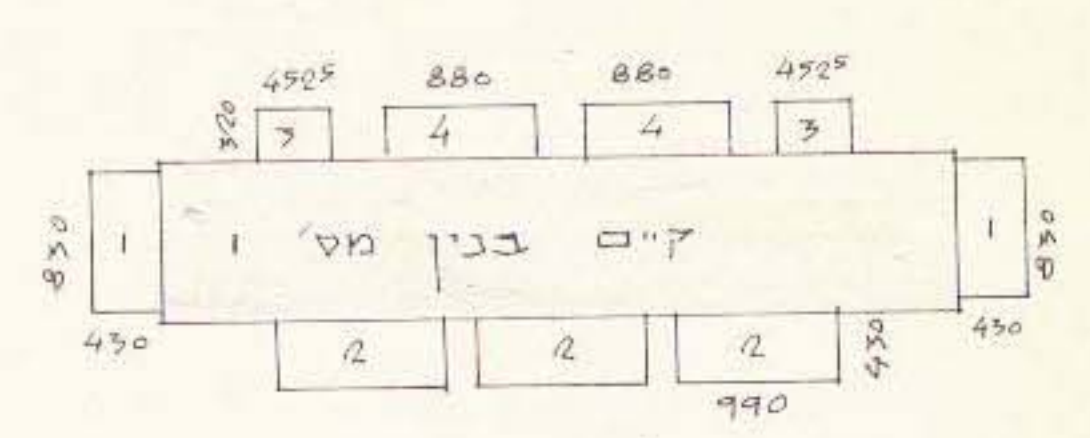 452⁵ 880 880 452⁵
320 3 4 4 3
830 1 קיים בנין מס' 1 1 830
430 2 2 2 430 430
990